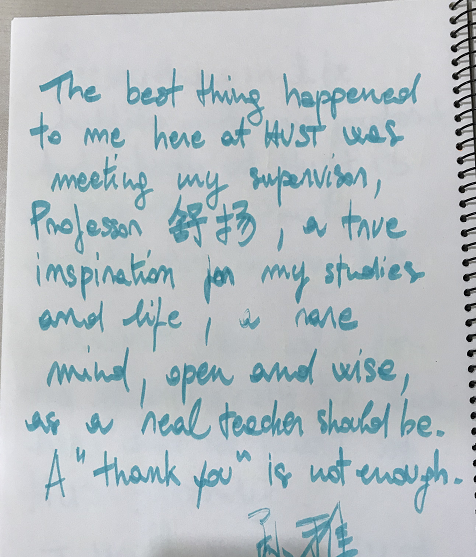 The best thing happened
to me here at HUST was
meeting my supervisor,
Professor 舒扬, a true
inspiration for my studies
and life, a rare
mind, open and wise,
as a real teacher should be.
A "thank you" is not enough.